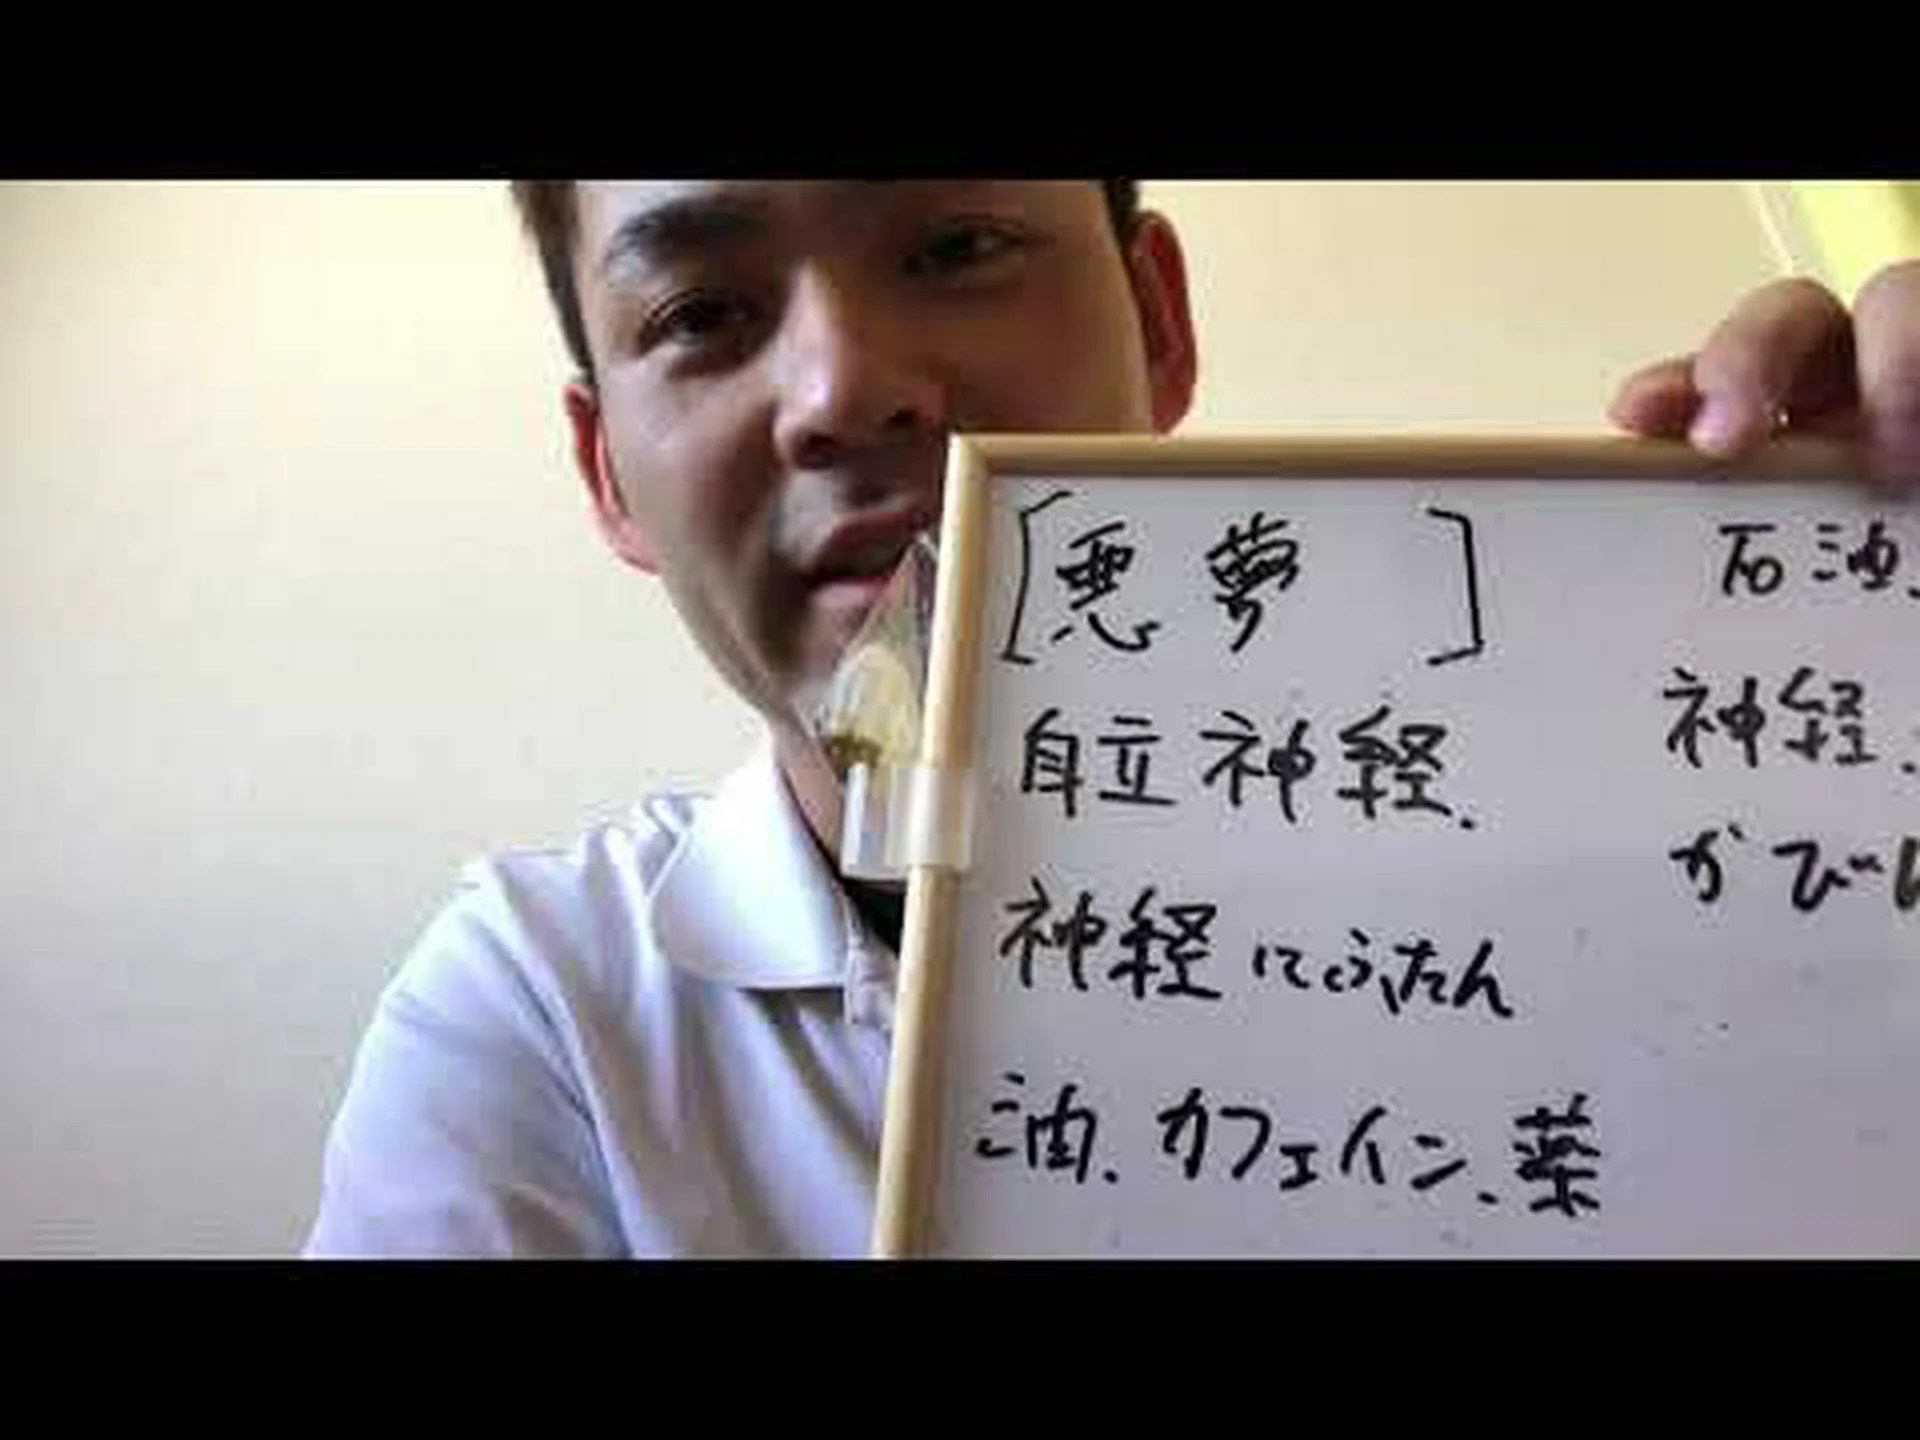 [悪夢 ]
自立神経.
神経にふたん
油.カフェイン、薬
石油、
神経.
かび